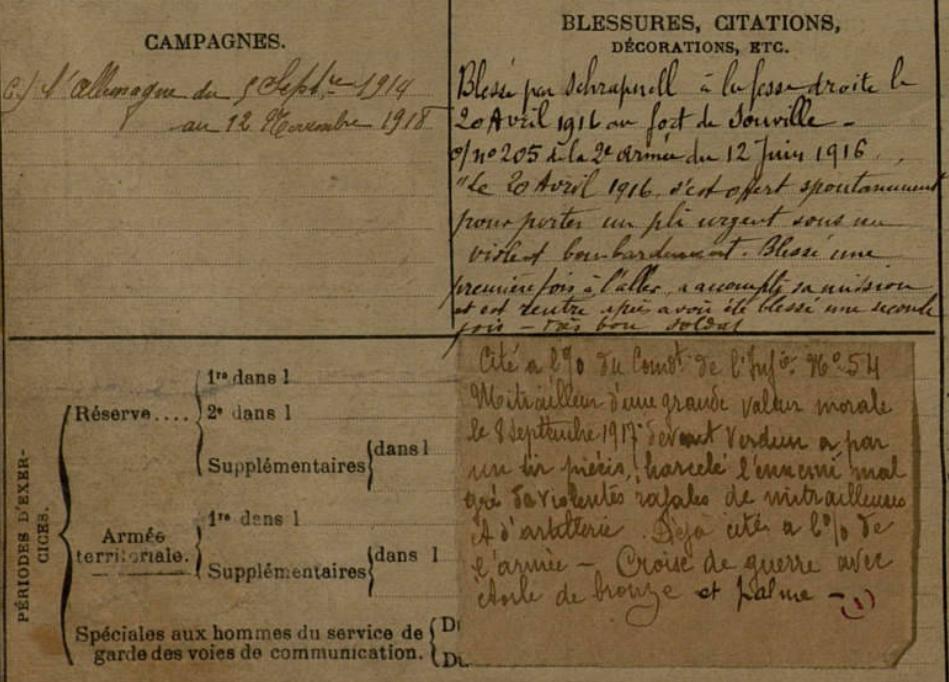 CAMPAGNES.
C./ l'Allemagne du 5 Septbre 1914
au 12 Novembre 1918
BLESSURES, CITATIONS,
DÉCORATIONS, ETC.
Blessé par Schrapnell à la fesse droite le
20 Avril 1916 au fort de Souville -
o/ n° 205 de la 2e armée du 12 Juin 1916.
"Le 20 Avril 1916 s'est offert spontanément
pour porter un pli urgent sous un
violent bombardement. Blessé une
première fois à l'aller, a accompli sa mission
et est rentré après avoir été blessé une seconde
fois - très bon soldat
Cité a l'%o du Comdt de l'Infie. N° 54
Mitrailleur d'une grande valeur morale
le 8 septembre 1917 devant Verdun a par
un tir précis, harcelé l'ennemi mal
gré de violentes rafales de mitrailleuses
et d'artillerie. Déjà cité a l'%o de
l'armée - Croix de guerre avec
étoile de bronze et palme - (1)
PÉRIODES D'EXER-
CICES.
Réserve....
1re dans l
2e dans l
Supplémentaires
dans l
Armée
territoriale.
1re dans l
Supplémentaires
dans l
Spéciales aux hommes du service de
garde des voies de communication.
Du
Du